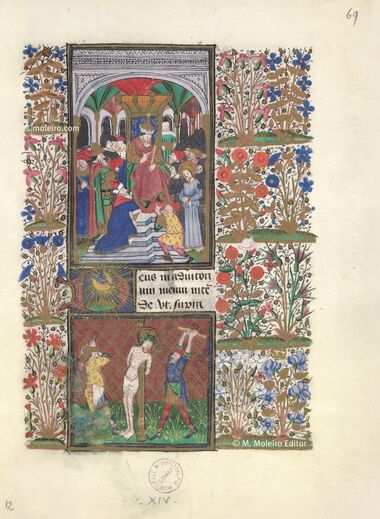 69
© moleiro.com
eus in adiutori
um meum inte
de Vt. supra
© M. Moleiro Editor
-XIV-
12